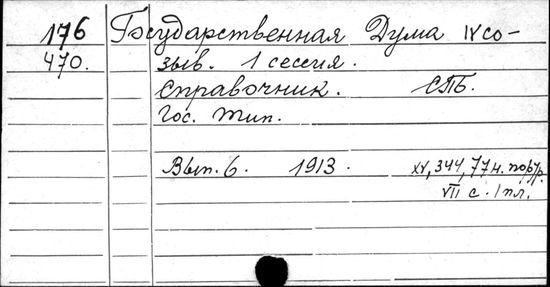 176 Государственная Дума IV со-
470. зыв. 1 сессия.
справочник. СПБ.
Гос. тип.
Вып. 6. 1913. XV, 344, 77 н. портр.
VII с. 1 пл.